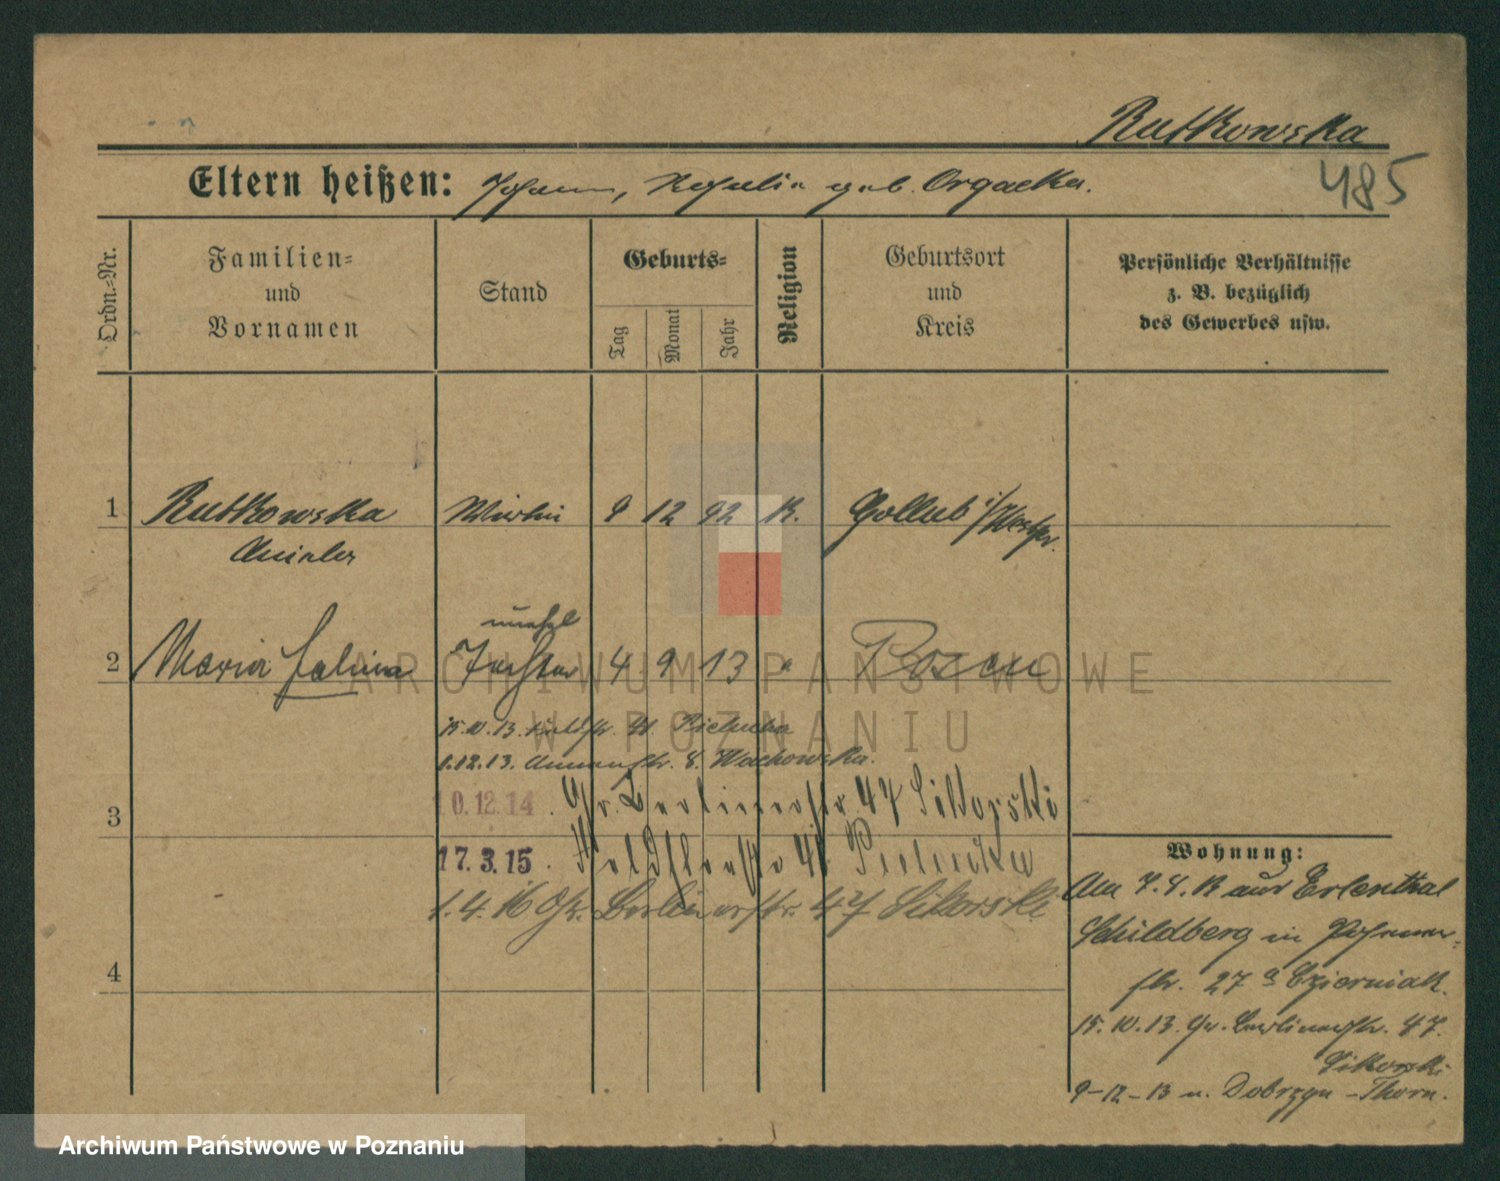 Rutkowska
485
Eltern heißen: Johann, Rosalia geb. Orgacka.
Ordn.-Nr.
Familien- und Vornamen
Stand
Geburts-
Tag
Monat
Jahr
Religion
Geburtsort und Kreis
Persönliche Verhältnisse
z. B. bezüglich
des Gewerbes usw.
1 Rutkowska 9 12 92 K. Gollub i/Westpr.
Aniela
unehel
2 Maria Halina Tochter 4 9 13 " Posen
15.10.13. 41 Pielucka
1.12.13. 8. Wachowska.
3
10.12.14. Gr. Berlinerstr. 47 Sikorski
17.3.15. 41 Pielucka
1.4.16 Gr. Berlinerstr. 47 Sikorski
4
Wohnung:
Am 7.8.13 aus Erlenthal
Schildberg in
str. 27 b Czierniak.
15.10.13. Gr. Berlinerstr. 47.
Sikorski
9-12-13 n. Dobrzyn - Thorn.
ARCHIWUM PAŃSTWOWE
W POZNANIU
Archiwum Państwowe w Poznaniu